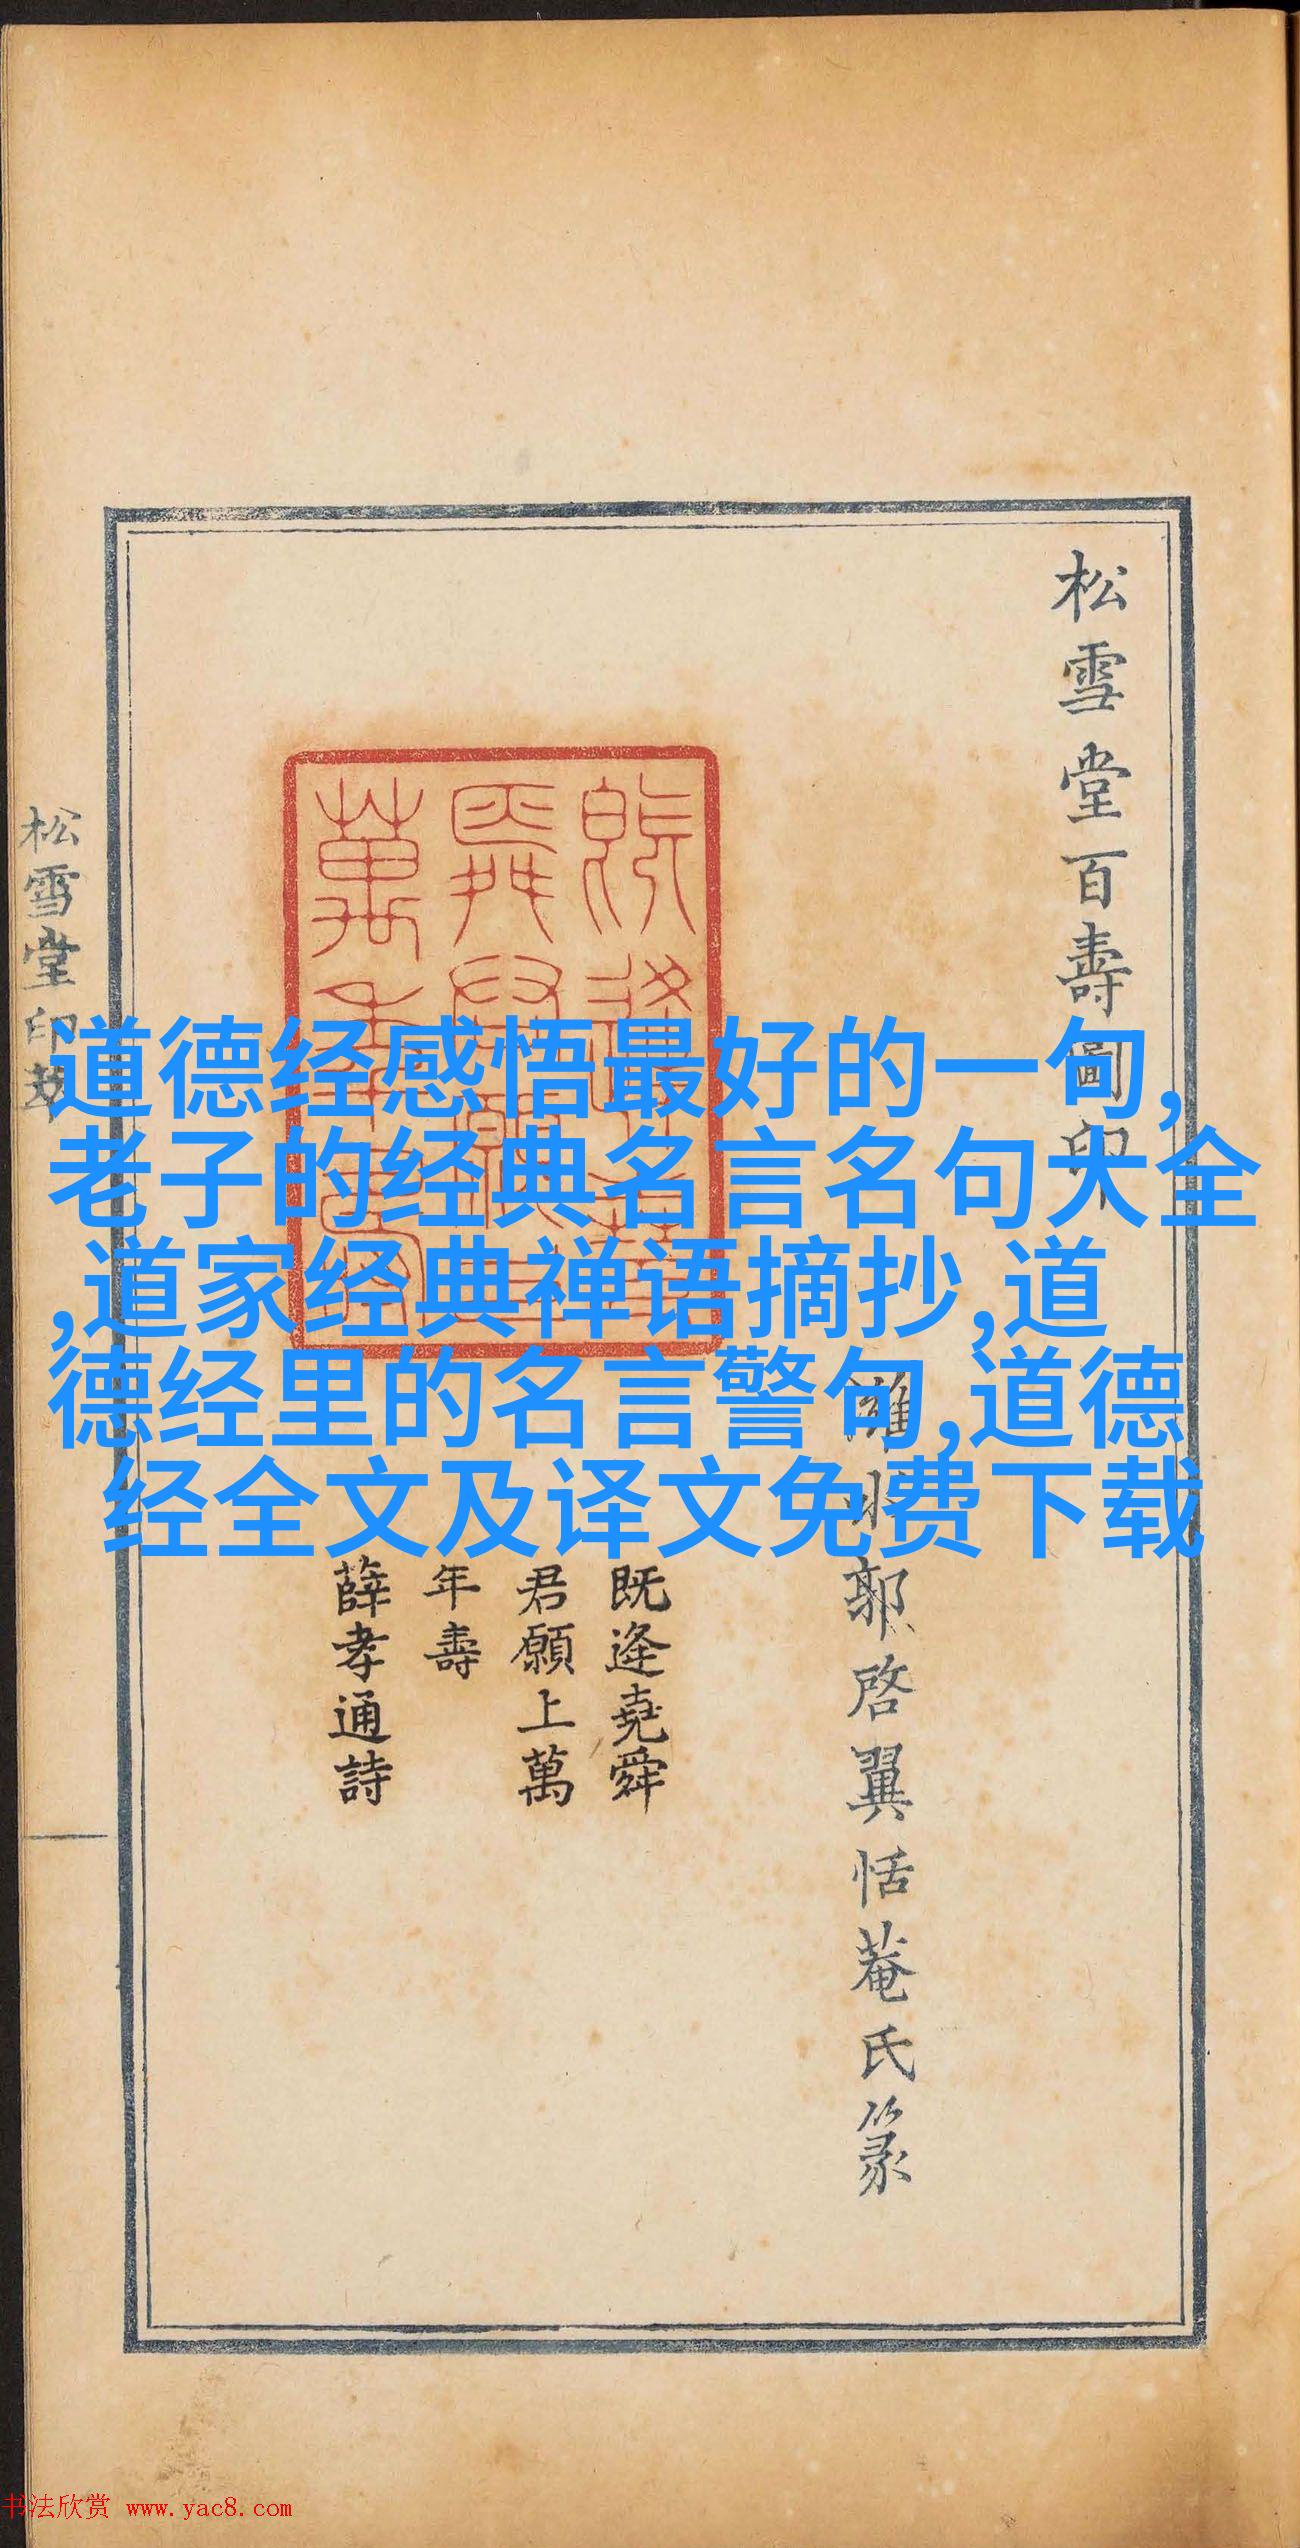 松雪堂百壽圖印
濰水郭啓翼恬菴氏篆
既逢堯舜
君願上萬
年壽
薛孝通詩
松雪堂印
道德经感悟最好的一句,
老子的经典名言名句大全
,道家经典禅语摘抄,道
德经里的名言警句,道德
经全文及译文免费下载
书法欣赏 www.yac8.com